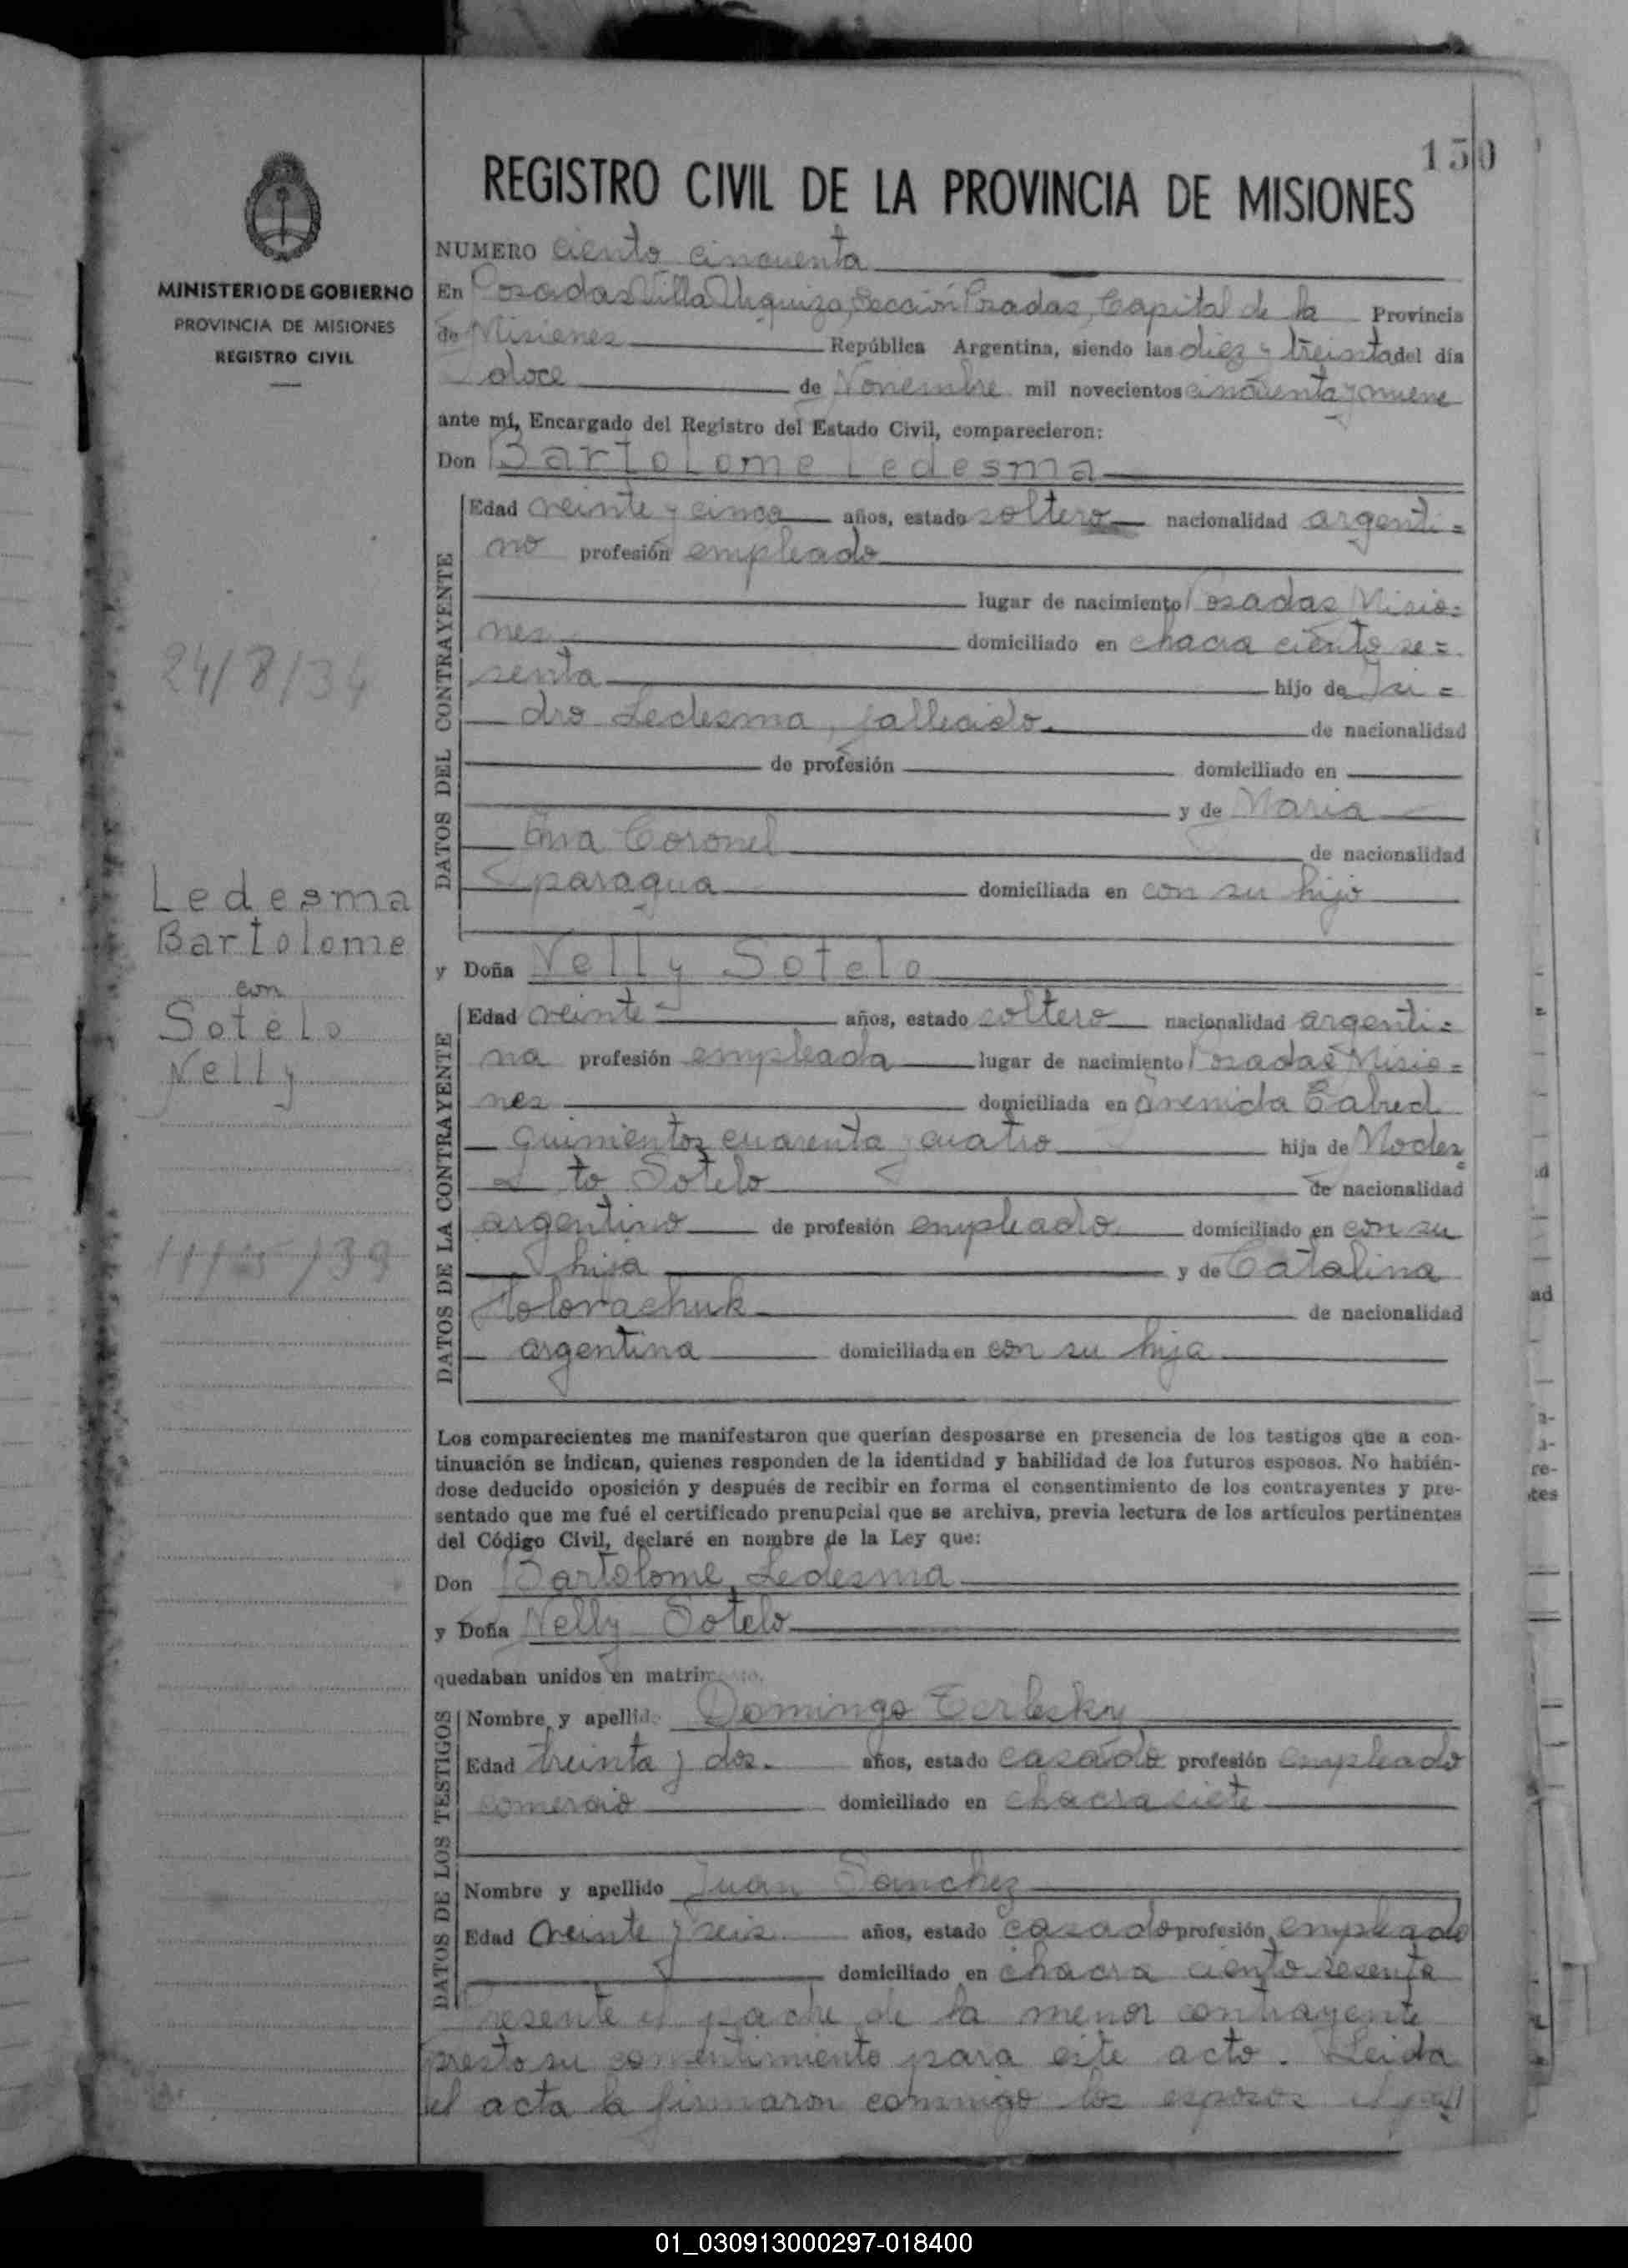 150
REGISTRO CIVIL DE LA PROVINCIA DE MISIONES
MINISTERIO DE GOBIERNO
PROVINCIA DE MISIONES
REGISTRO CIVIL
24/8/34
Ledesma
Bartolome
con
Sotelo
Nelly
11/ /39
NUMERO ciento cincuenta
En Posadas Villa Urquiza, Sección Posadas, Capital de la Provincia
de Misiones República Argentina, siendo las diez y treinta del día
doce de Noviembre mil novecientos cincuenta y nueve
ante mí, Encargado del Registro del Estado Civil, comparecieron:
Don Bartolome Ledesma
DATOS DEL CONTRAYENTE
Edad veinte y cinco años, estado soltero nacionalidad argenti=
no profesión empleado
lugar de nacimiento Posadas Misio=
nes domiciliado en chacra ciento se=
senta hijo de Isi=
dro Ledesma, fallecido de nacionalidad
de profesión domiciliado en
y de Maria
Ema Coronel de nacionalidad
paragua domiciliada en con su hijo
y Doña Nelly Sotelo
DATOS DE LA CONTRAYENTE
Edad veinte años, estado soltero nacionalidad argenti=
na profesión empleada lugar de nacimiento Posadas Misio=
nes domiciliada en avenida Cabred
quinientos cuarenta y cuatro hija de Modes=
to Sotelo de nacionalidad
argentino de profesión empleado domiciliado en con su
hija y de Catalina
Holovachuk de nacionalidad
argentina domiciliada en con su hija
Los comparecientes me manifestaron que querían desposarse en presencia de los testigos que a con-
tinuación se indican, quienes responden de la identidad y habilidad de los futuros esposos. No habién-
dose deducido oposición y después de recibir en forma el consentimiento de los contrayentes y pre-
sentado que me fué el certificado prenupcial que se archiva, previa lectura de los artículos pertinentes
del Código Civil, declaré en nombre de la Ley que:
Don Bartolome Ledesma
y Doña Nelly Sotelo
quedaban unidos en matrimonio.
DATOS DE LOS TESTIGOS
Nombre y apellido Domingo Terlecky
Edad treinta y dos. años, estado casado profesión empleado
comercio domiciliado en chacra siete
Nombre y apellido Juan Sanchez
Edad veinte y seis años, estado casado profesión empleado
domiciliado en chacra ciento sesenta
Presente el padre de la menor contrayente
presto su consentimiento para este acto. Leida
el acta la firmaron conmigo los esposos el
01_030913000297-018400